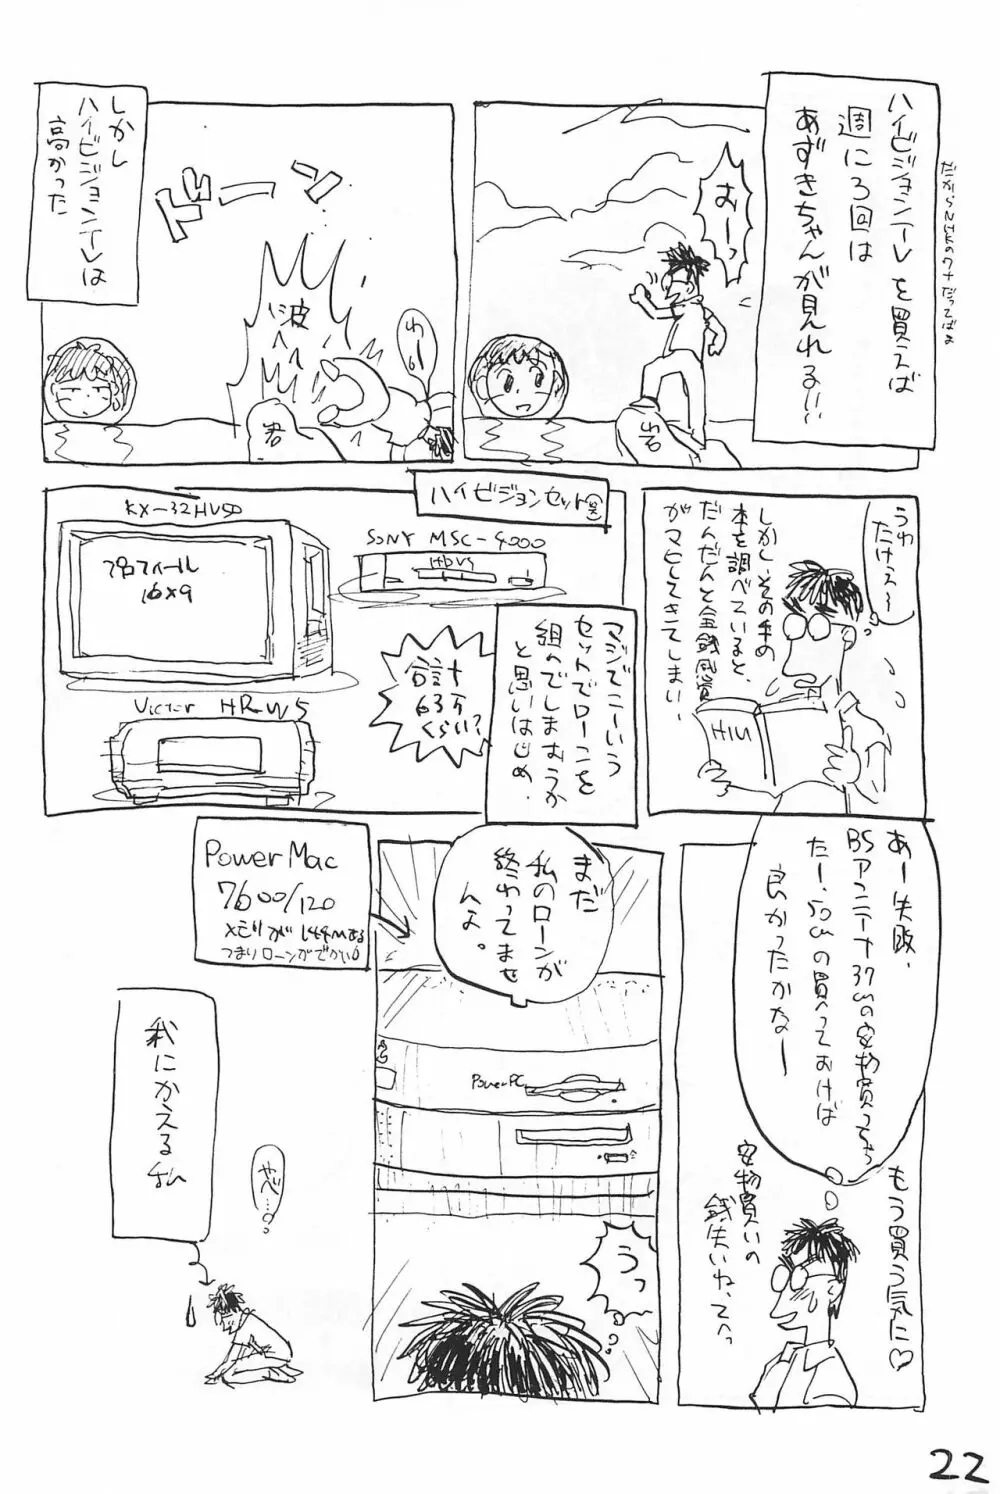 ハイビジョンTVを買えば
週に3回は
あずきちゃんが見れる!!
だからNHKのワナだってばよ
おーっ
岩
しかし
ハイビジョンTVは
高かった
ドーン
波
わー
岩
うわ
たけぇ〜
しかし、その手の
本を調べていると、
だんだんと金銭感覚
がマヒしてきてしまい、
HIVI
ハイビジョンセット(笑)
KX-32HV50
プロフィール
16×9
SONY MSC-4000
Victor HR-W5
合計
63万
くらい?
マジでこーいう
セットでローンを
組んでしまおうか
と思いはじめ、
あー失敗、
BSアンテナ37cmの安物買っちゃ
たー、50cmの買っておけば
良かったかなー
もう買う気に♡
安物買いの
銭失いね、てへっ
まだ
私のローンが
終わってませ
んよ。
PowerMac
7600/120
メモリが144Mある
つまりローンがでかい
PowerPC
うっ
我にかえる私
やべ…。
22